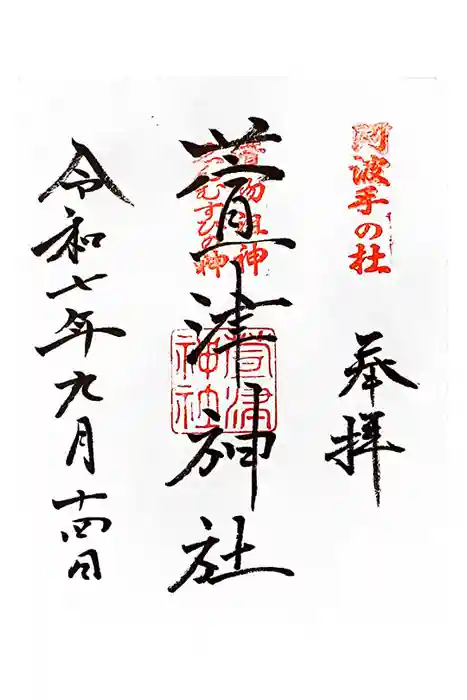 阿波手の杜
奉拝
漬物祖神
かやむすびの神
萱津神社
萱津神社
令和七年九月十四日